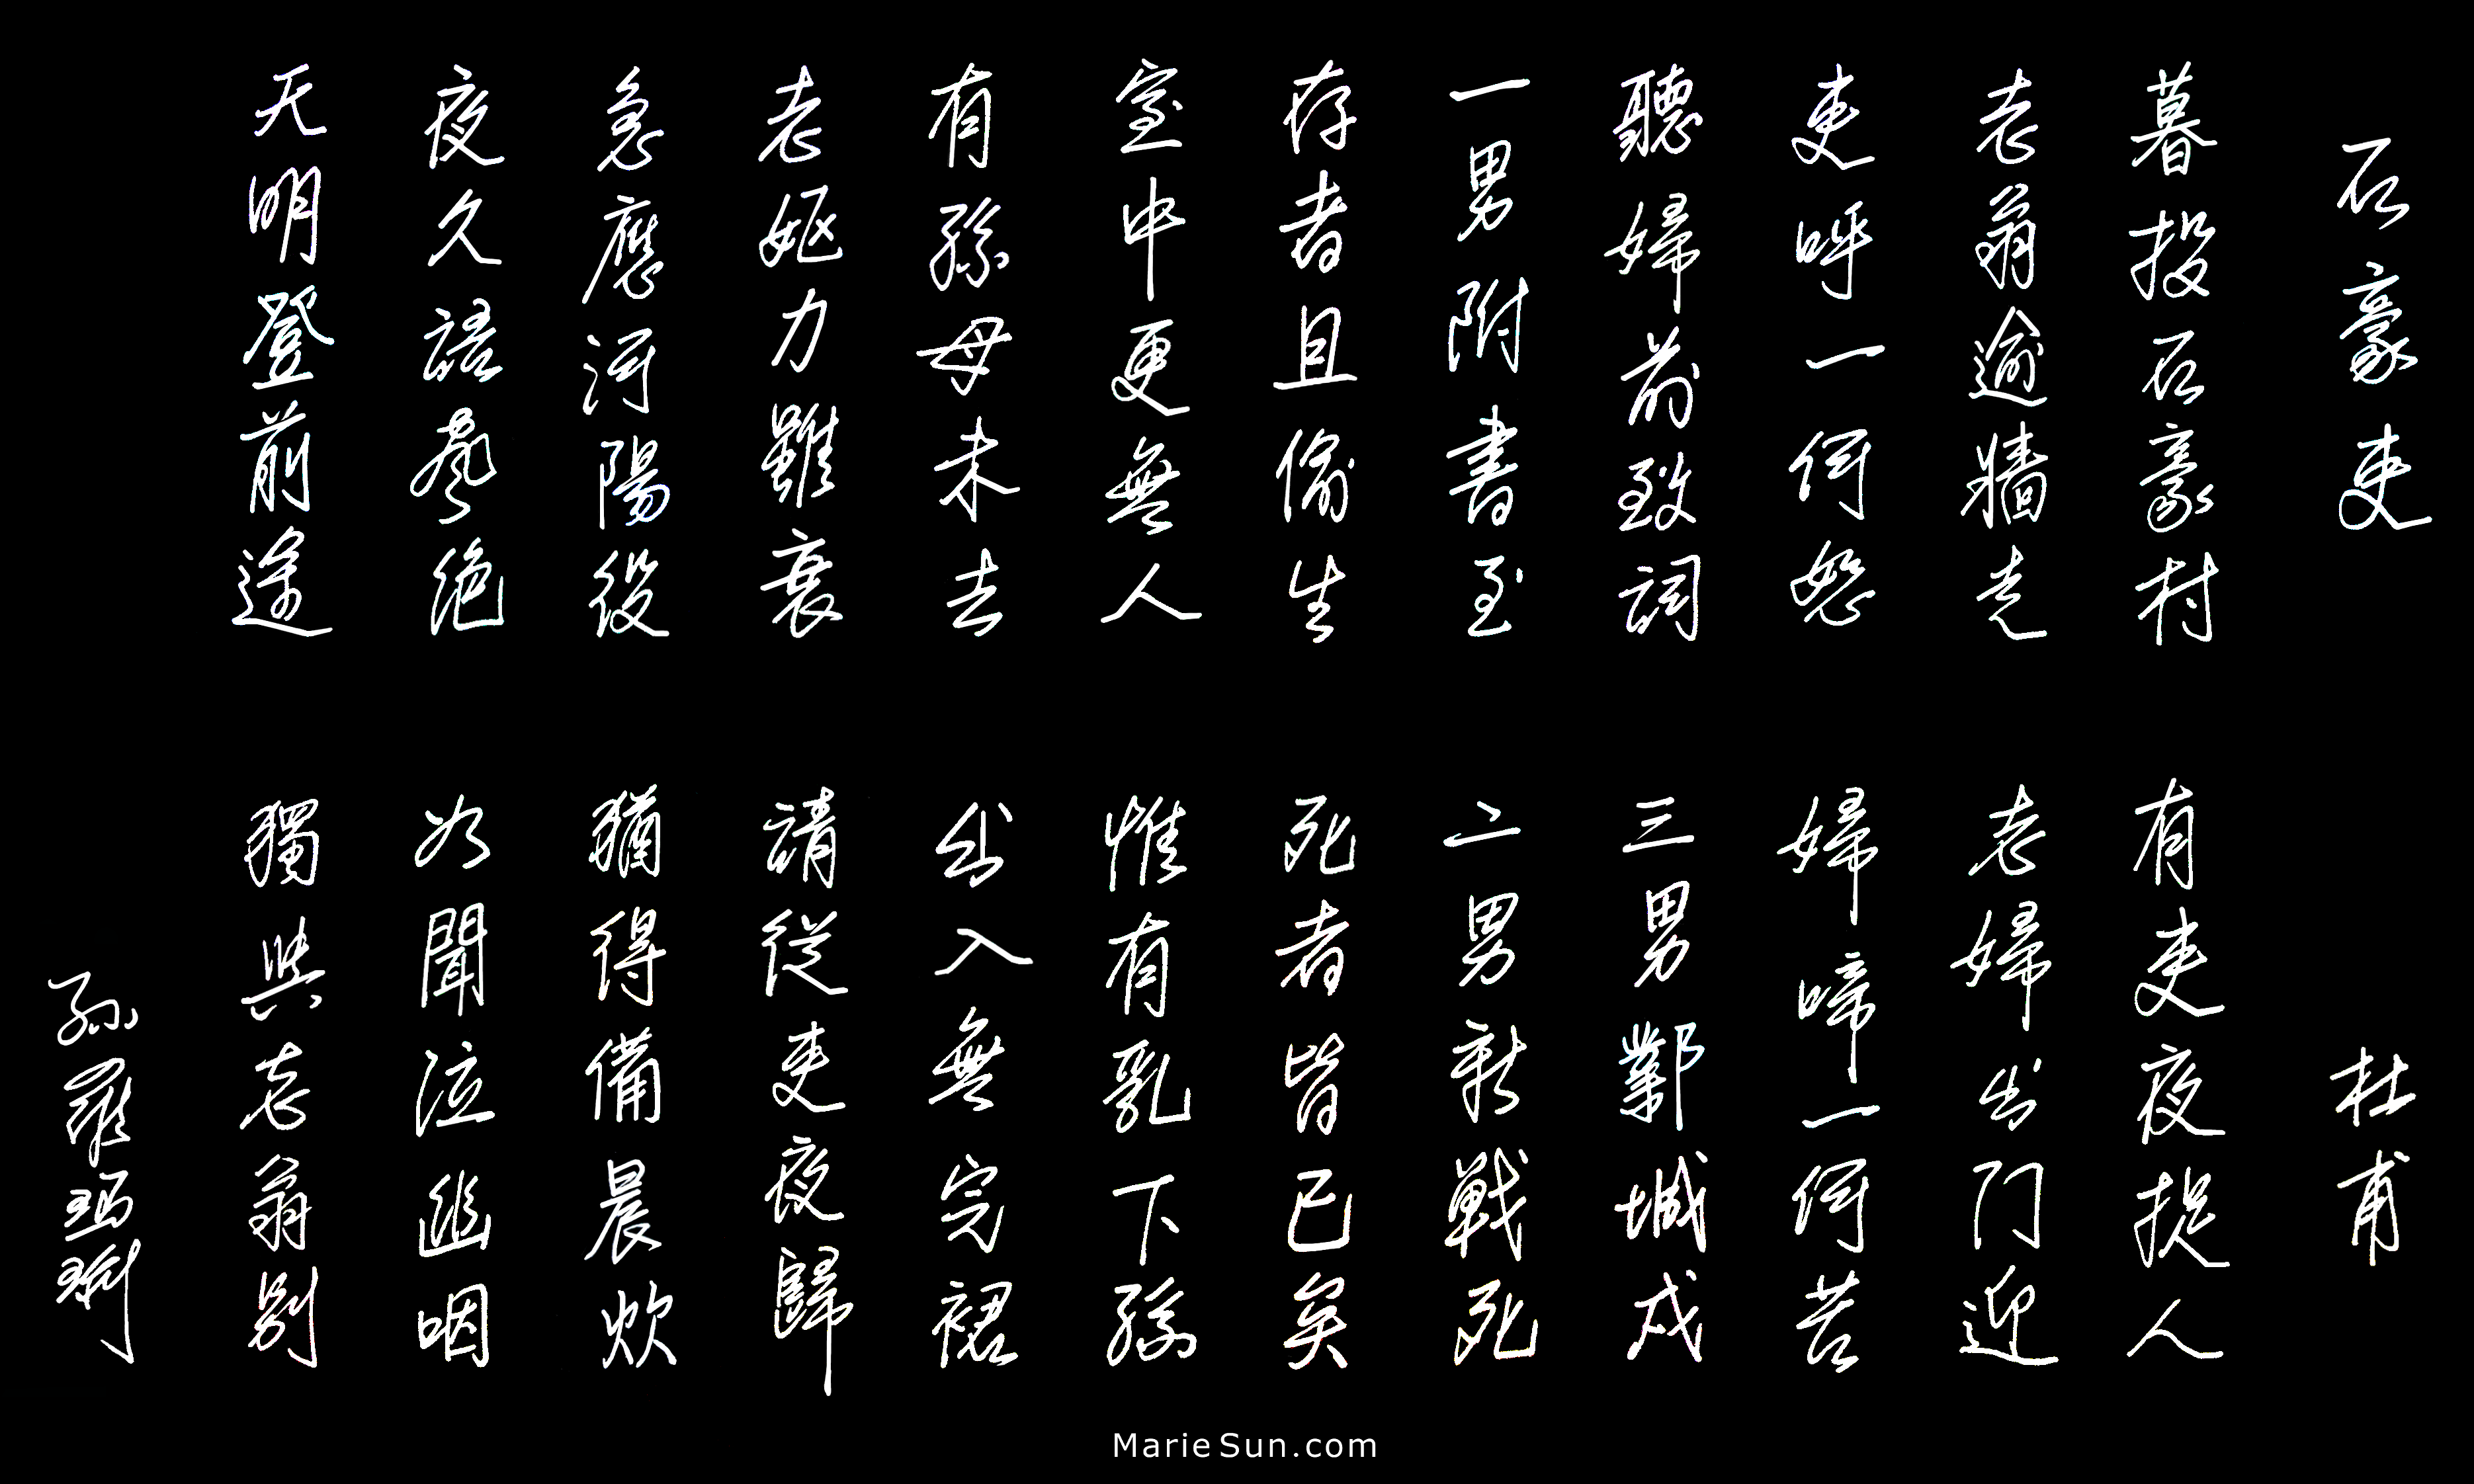 石豪吏
杜甫
暮投石豪村
有吏夜捉人
老翁逾牆走
老婦出门迎
吏呼一何怒
婦啼一何苦
聽婦前致詞
三男鄴城戍
一男附書至
二男新戰死
存者且偷生
死者皆已矣
室中更無人
惟有乳下孫
有孫母未去
出入無完裙
老妪力雖衰
請從吏夜歸
急應河陽役
猶得備晨炊
夜久語聲絕
如聞泣幽咽
天明登前途
獨與老翁別
孫羅瑪琍
MarieSun.com